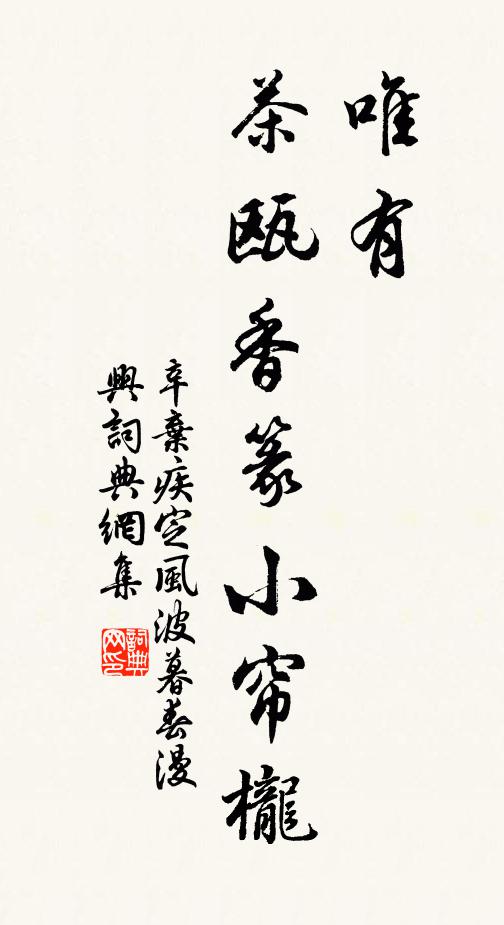 唯有
茶甌香篆小帘櫳
辛棄疾定風波暮春漫
興詞典網集
詞典网印